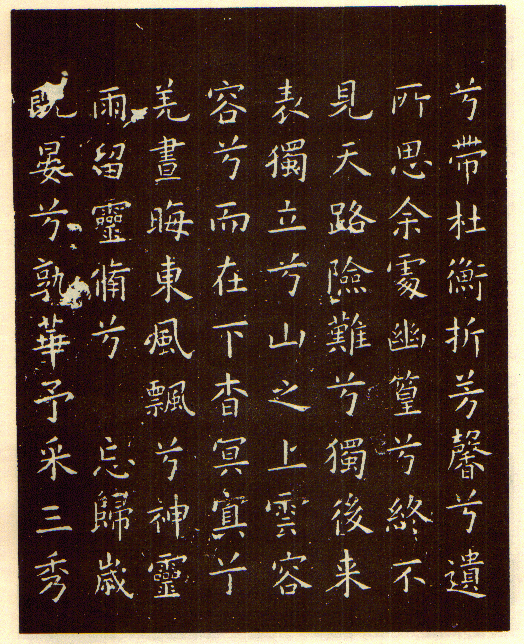 兮帶杜衡折芳馨兮遺
所思余處幽篁兮終不
見天路險難兮獨後来
表獨立兮山之上雲容
容兮而在下杳冥冥兮
羌晝晦東風飄兮神靈
雨留靈脩兮 忘歸歲
既晏兮孰華予采三秀